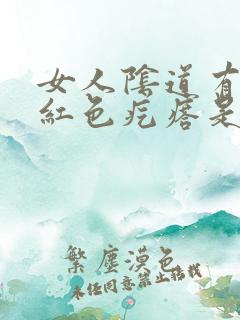 女人陰道有
紅色疙瘩是
繁塵漠色
未任同意禁止搭载